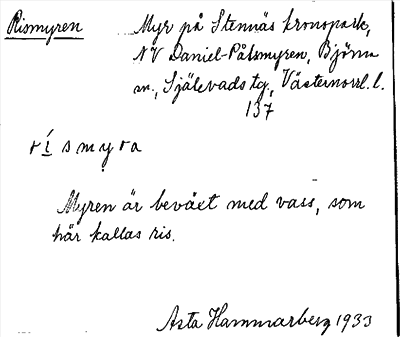 Rismyren Myr på Stennäs kronopark,
NV Daniel-Pålsmyren, Björna
sn., Själevads tg., Västernorrl. l.
137
rismyra
Myren är beväxt med vass, som
här kallas ris.
Asta Hammarberg 1933